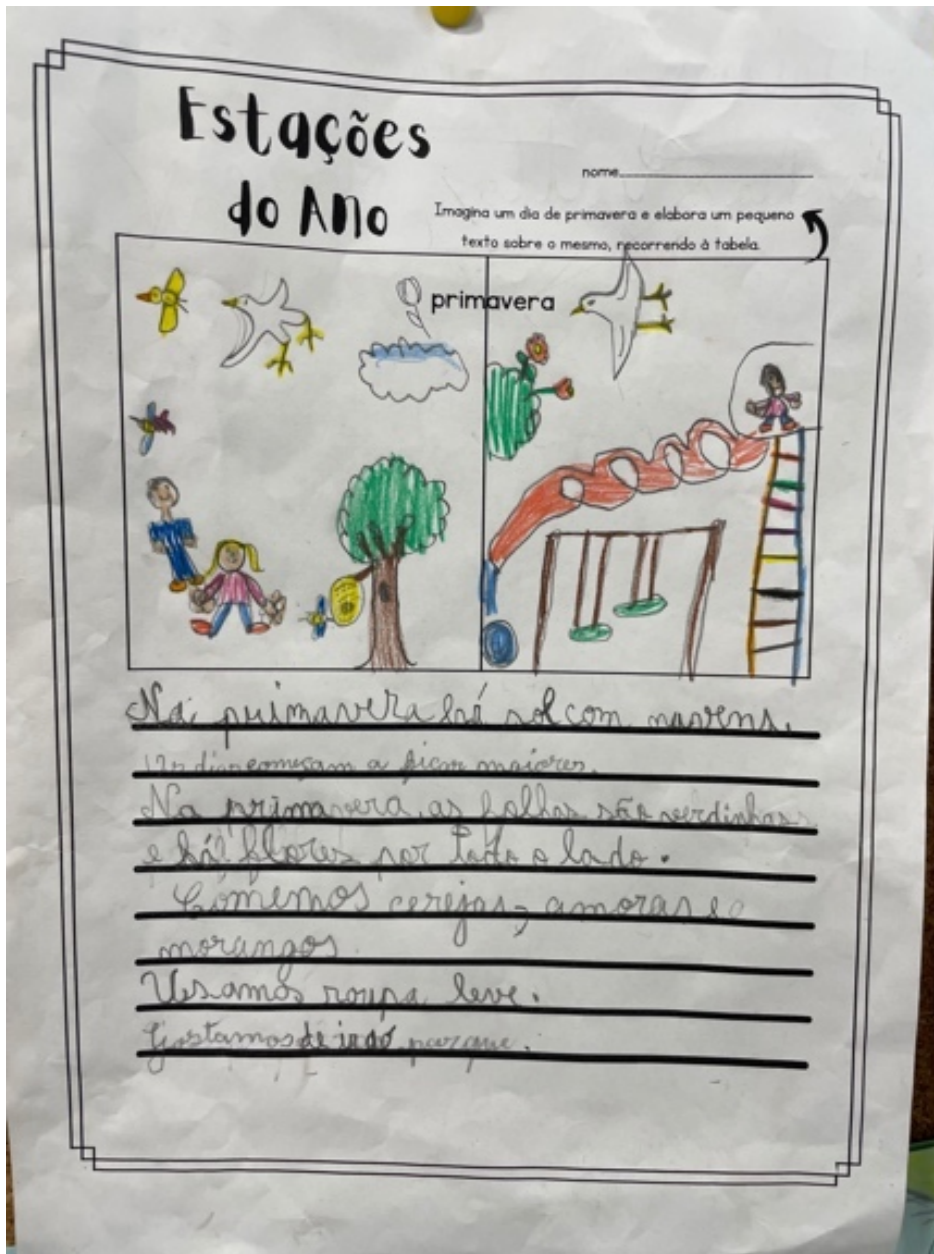 Estações
do Ano
nome
Imagina um dia de primavera e elabora um pequeno
texto sobre o mesmo, recorrendo à tabela.
primavera
Na primavera há sol com nuvens.
Os dias começam a ficar maiores.
Na primavera as folhas são verdinhas
e há flores por todo o lado.
Comemos cerejas, amoras e
morangos.
Usamos roupa leve.
Gostamos de ir ao parque.